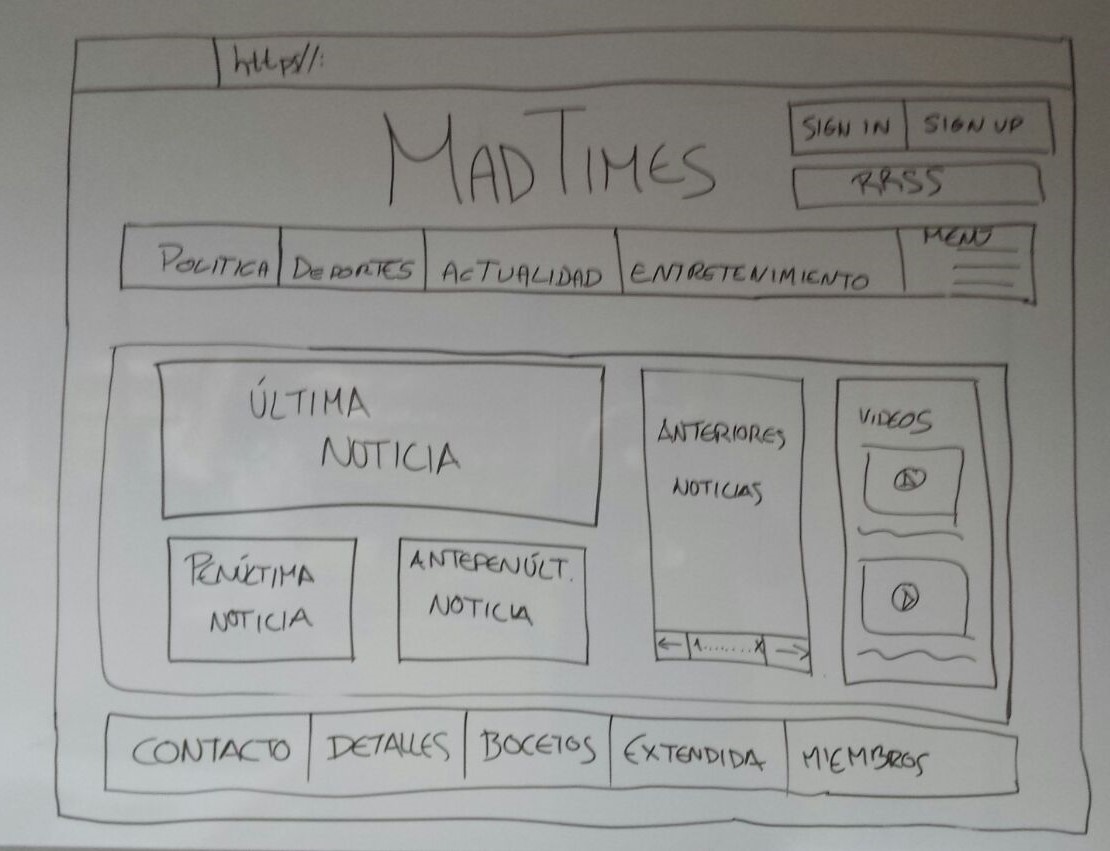 http//:
MADTIMES
SIGN IN
SIGN UP
RRSS
POLITICA
DEPORTES
ACTUALIDAD
ENTRETENIMIENTO
MENÚ
ÚLTIMA
NOTICIA
PENÚLTIMA
NOTICIA
ANTEPENÚLT.
NOTICIA
ANTERIORES
NOTICIAS
← 1........x →
VIDEOS
CONTACTO
DETALLES
BOCETOS
EXTENDIDA
MIEMBROS